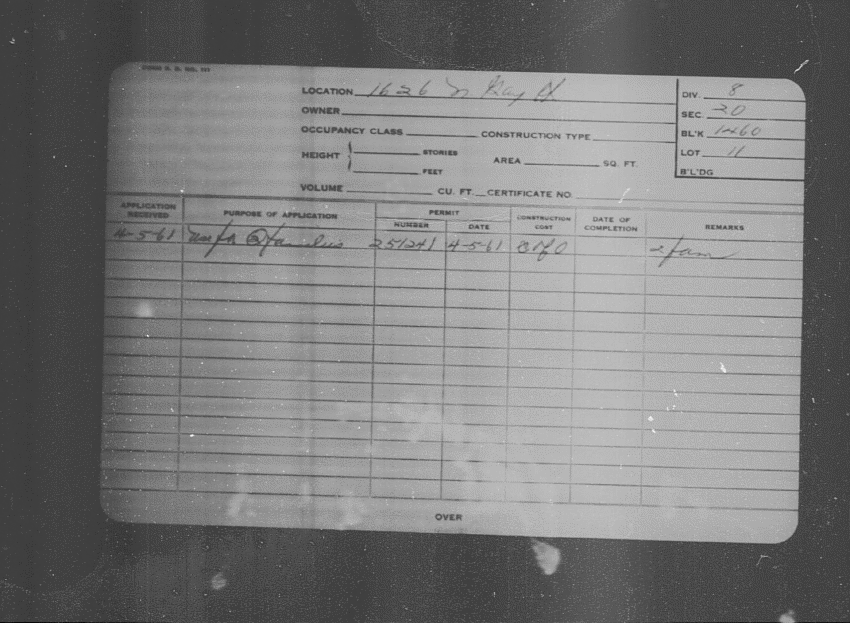 LOCATION 1626 N Kay St DIV. 8
OWNER SEC. 20
OCCUPANCY CLASS CONSTRUCTION TYPE BL'K 1460
HEIGHT STORIES AREA SQ. FT. LOT 11
FEET B'L'DG
VOLUME CU. FT. CERTIFICATE NO.
APPLICATION RECEIVED PURPOSE OF APPLICATION PERMIT NUMBER DATE CONSTRUCTION COST DATE OF COMPLETION REMARKS
4-5-61 use for 2 families 251241 4-5-61 C of O 2 fam
OVER